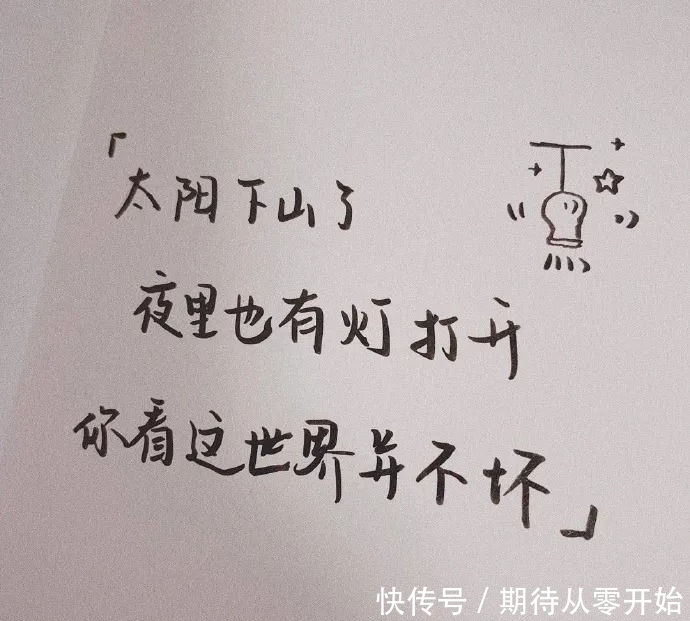 「太阳下山了
夜里也有灯打开
你看这世界并不坏」
快传号 / 期待从零开始